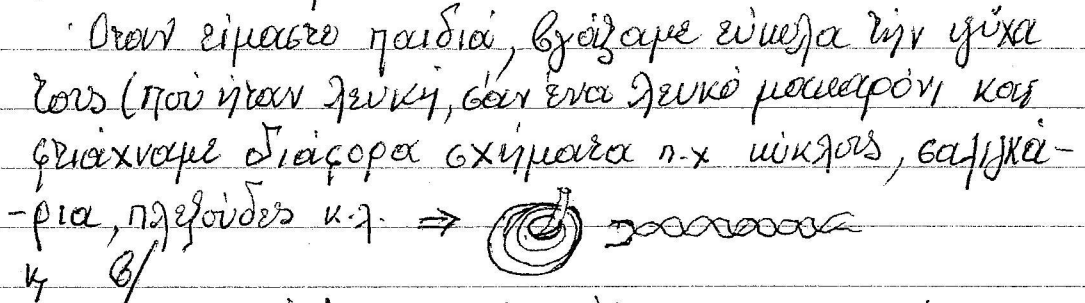 Όταν είμαστε παιδιά, βγάζαμε εύκολα τήν ψύχα
τους (πού ήταν λευκή, σάν ένα λευκό μακαρόνι και
φτιάχναμε διάφορα σχήματα π.χ κύκλους, σαλιγκά-
-ρια, πλεξούδες κ.λ. ⇒
β/